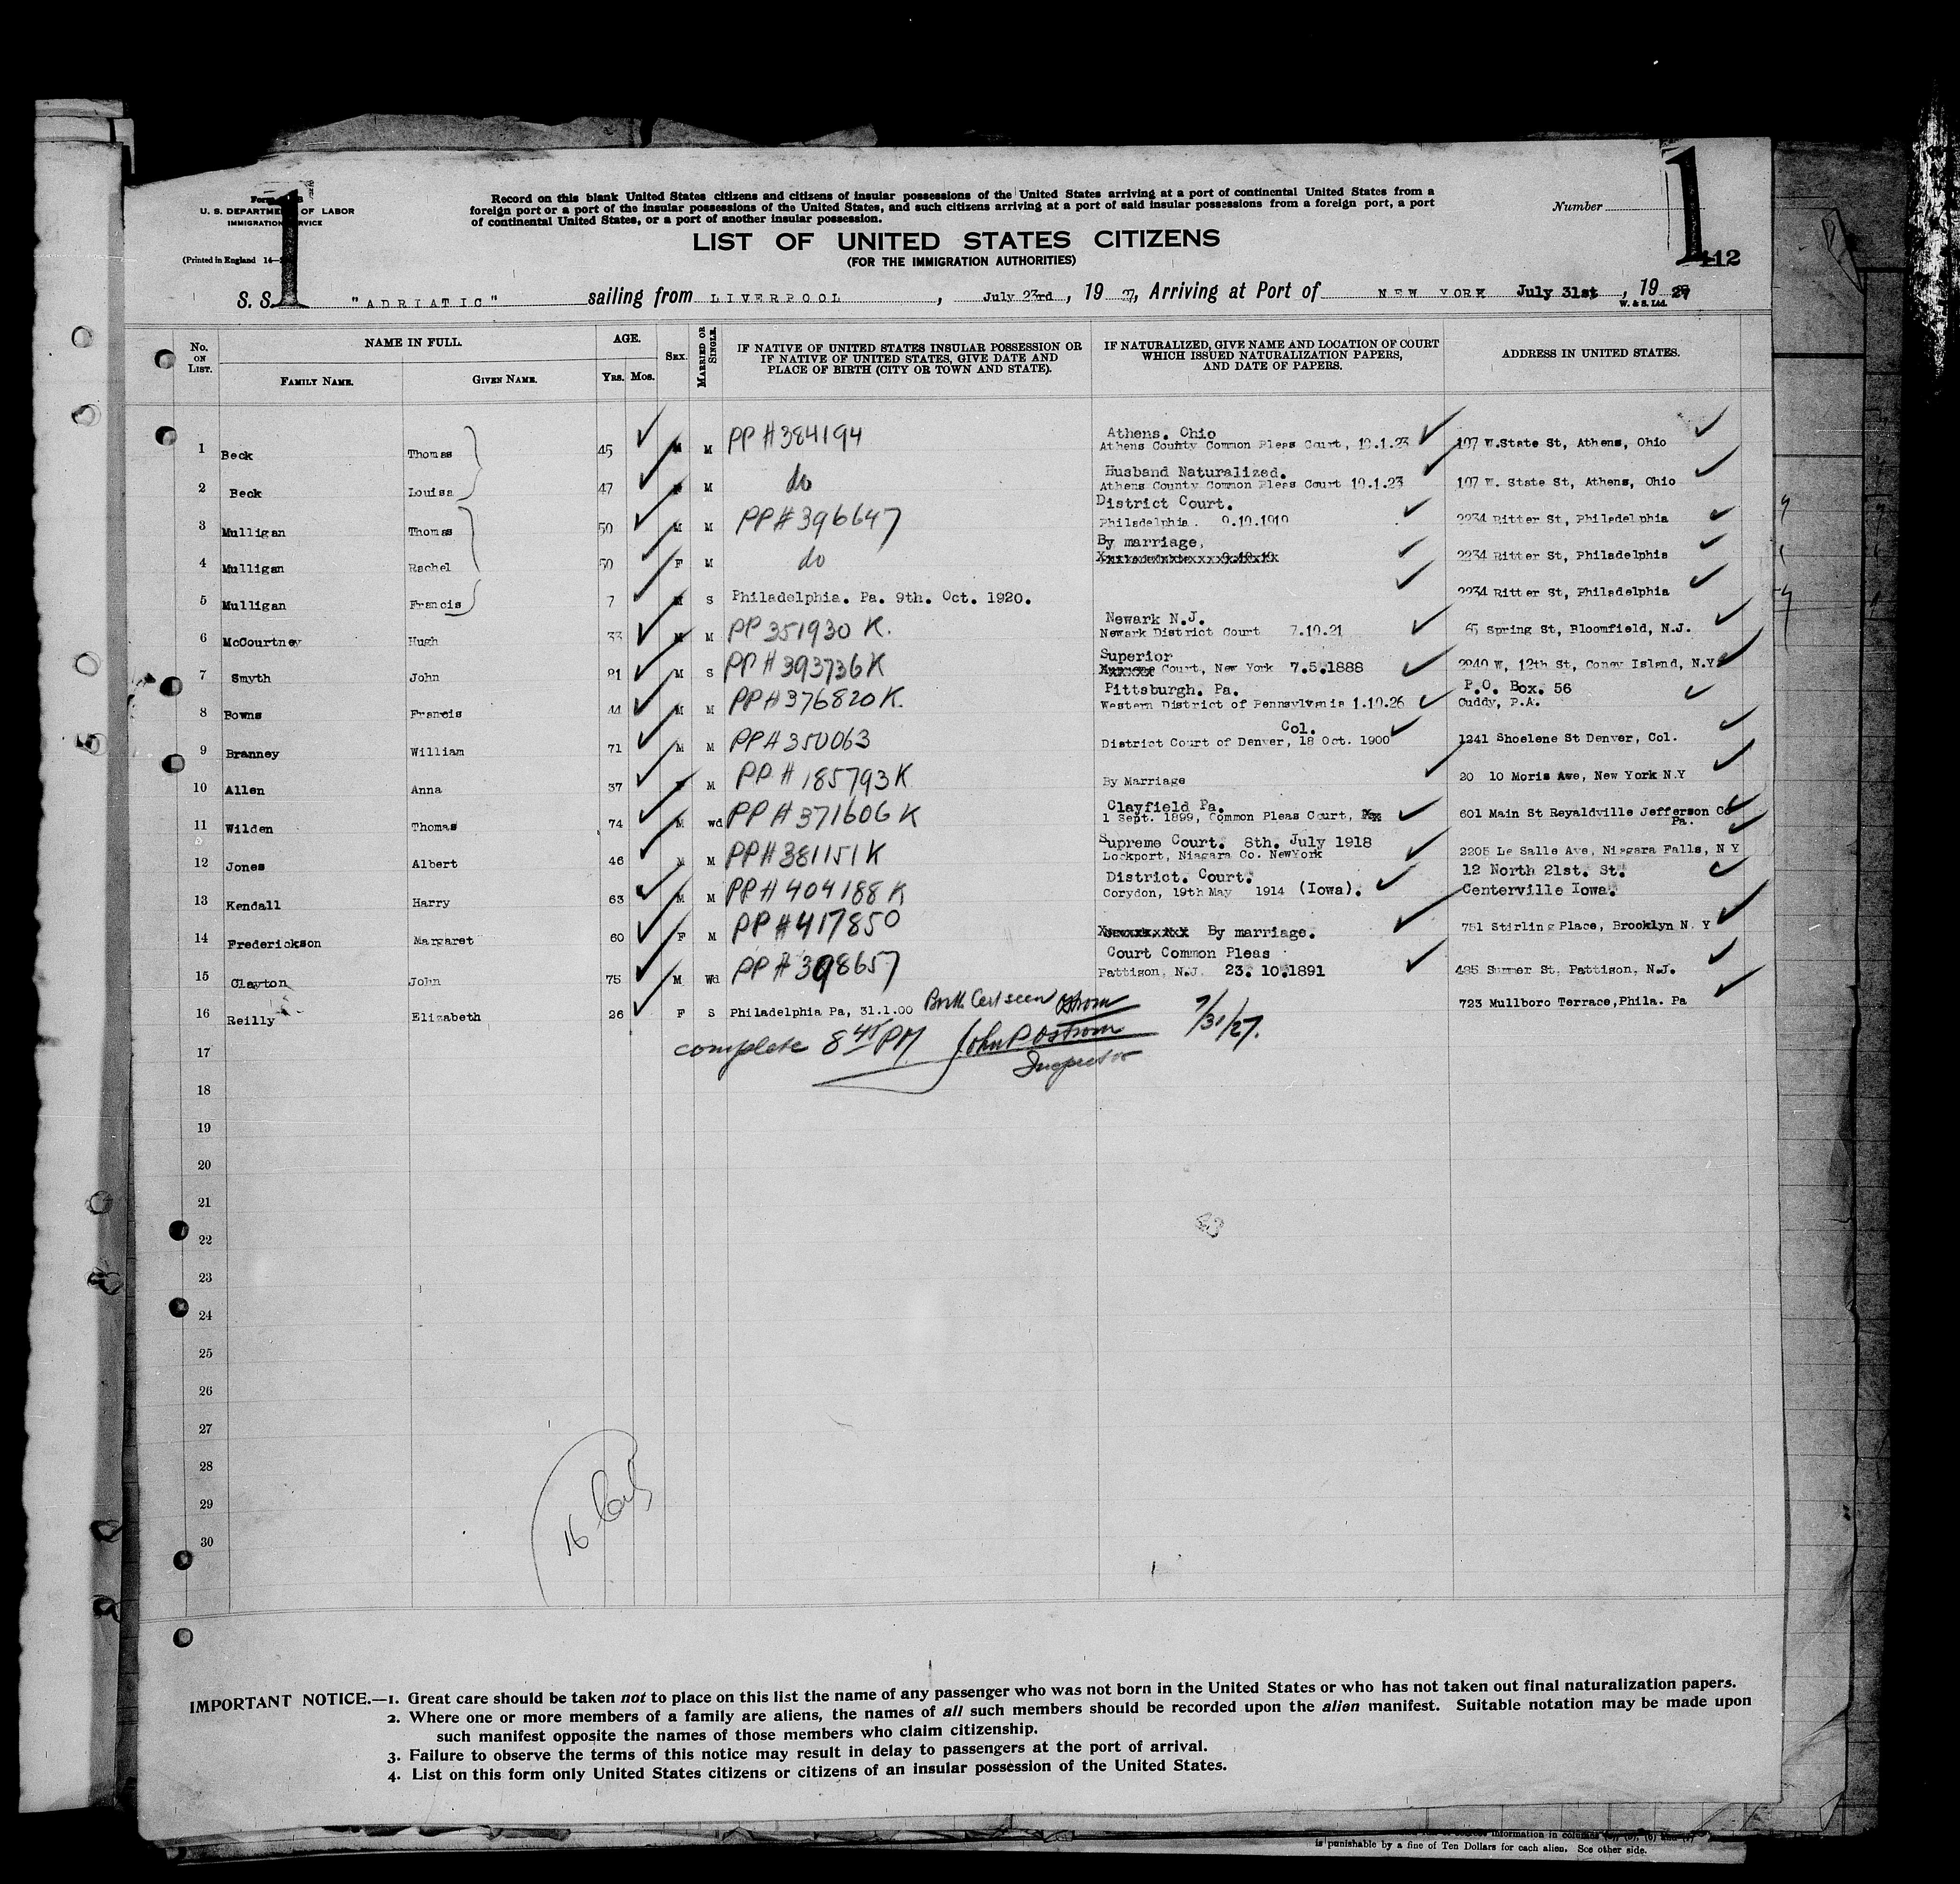 1
1
Form
U. S. DEPARTMENT OF LABOR
IMMIGRATION SERVICE
(Printed in England 14—
Record on this blank United States citizens and citizens of insular possessions of the United States arriving at a port of continental United States from a
foreign port or a port of the insular possessions of the United States, and such citizens arriving at a port of said insular possessions from a foreign port, a port
of continental United States, or a port of another insular possession.
Number
112
LIST OF UNITED STATES CITIZENS
(FOR THE IMMIGRATION AUTHORITIES)
S. S. "ADRIATIC" sailing from LIVERPOOL, July 23rd, 19 27, Arriving at Port of NEW YORK July 31st, 19 27
W. & S. Ltd.
No. ON LIST.
NAME IN FULL.
FAMILY NAME.
GIVEN NAME.
AGE.
YRS. MOS.
SEX.
MARRIED OR SINGLE.
IF NATIVE OF UNITED STATES INSULAR POSSESSION OR
IF NATIVE OF UNITED STATES, GIVE DATE AND
PLACE OF BIRTH (CITY OR TOWN AND STATE).
IF NATURALIZED, GIVE NAME AND LOCATION OF COURT
WHICH ISSUED NATURALIZATION PAPERS,
AND DATE OF PAPERS.
ADDRESS IN UNITED STATES.
Athens. Ohio
1 Beck Thomas 45 M M PP # 384194 Athens County Common Pleas Court, 10.1.23 107 W.State St, Athens, Ohio
Husband Naturalized.
2 Beck Louisa 47 F M do Athens County Common Pleas Court 10.1.23 107 W. State St, Athens, Ohio
District Court.
3 Mulligan Thomas 50 M M PP # 396647 Philadelphia. 9.10.1919 2234 Ritter St, Philadelphia
By marriage,
4 Mulligan Rachel 50 F M do 2234 Ritter St, Philadelphia
5 Mulligan Francis 7 M S Philadelphia. Pa. 9th. Oct. 1920. 2234 Ritter St, Philadelphia
Newark N.J.
6 McCourtney Hugh 33 M M PP 351930 K. Newark District Court 7.10.21 65 Spring St, Bloomfield, N.J.
Superior
7 Smyth John 81 M S PP # 393736 K Court, New York 7.5.1888 2940 W, 12th St, Coney Island, N.Y.
Pittsburgh. Pa. P.O. Box. 56
8 Bowns Francis 44 M M PP # 376820 K. Western District of Pennsylvania 1.10.26 Cuddy, P.A.
Col.
9 Branney William 71 M M PP # 350063 District Court of Denver, 18 Oct. 1900 1241 Shoelene St Denver, Col.
10 Allen Anna 37 F M PP # 185793 K By Marriage 20 10 Moris Ave, New York N.Y
Clayfield Pa.
11 Wilden Thomas 74 M wd PP # 371606 K 1 Sept. 1899, Common Pleas Court, 601 Main St Reyaldville Jefferson Co
Pa.
Supreme Court. 8th. July 1918
12 Jones Albert 46 M M PP # 381151 K Lockport, Niagara Co. NewYork 2205 Le Salle Ave, Niagara Falls, N Y
District. Court. 12 North 21st. St.
13 Kendall Harry 63 M M PP # 404188 K Corydon, 19th May 1914 (Iowa). Centerville Iowa.
14 Frederickson Margaret 60 F M PP # 417850 By marriage. 751 Stirling Place, Brooklyn N. Y
Court Common Pleas
15 Clayton John 75 M Wd PP # 398657 Pattison, N.J. 23. 10.1891 485 Summer St, Pattison, N.J.
16 Reilly Elizabeth 26 F S Philadelphia Pa, 31.1.00 Birth Cert seen Ostrom 723 Mullboro Terrace, Phila. Pa
17 complete 8 45 PM John P Ostrom 7/31/27.
Inspector
18
19
20
21
22
23
24
25
26
27
28
29
30
16
IMPORTANT NOTICE.—1. Great care should be taken not to place on this list the name of any passenger who was not born in the United States or who has not taken out final naturalization papers.
2. Where one or more members of a family are aliens, the names of all such members should be recorded upon the alien manifest. Suitable notation may be made upon
such manifest opposite the names of those members who claim citizenship.
3. Failure to observe the terms of this notice may result in delay to passengers at the port of arrival.
4. List on this form only United States citizens or citizens of an insular possession of the United States.
information in columns
is punishable by a fine of Ten Dollars for each alien. See other side.